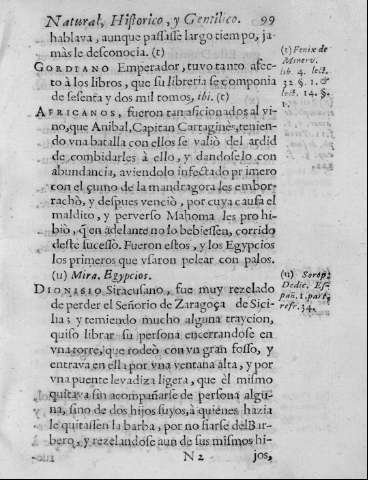 Natural, Historico, y Gentilico. 99
hablava, aunque passasse largo tiempo, ja-
màs le desconocia. (t)
GORDIANO Emperador, tuvo tanto afec-
to à los libros, que su libreria se componia
de sesenta y dos mil tomos, ibi. (t)
AFRICANOS, fueron tan aficionados al vi-
no, que Anibal, Capitan Cartaginès, tenien-
do vna batalla con ellos se valiò del ardid
de combidarles à ello, y dandoselo con
abundancia, aviendolo infectado primero
con el çumo de la mandragora les embor-
rachò, y despues venciò, por cuya causa el
maldito, y perverso Mahoma les prohi-
biò, q̃ en adelante no lo bebiessen, corrido
deste sucesso. Fueron estos, y los Egypcios
los primeros que vsaron pelear con palos.
(u) Mira. Egypcios.
DIONISIO Siracusano, fue muy rezelado
de perder el Señorio de Zaragoça de Sici-
lia; y temiendo mucho alguna traycion,
quiso librar su persona encerrandose en
vna torre, que rodeò con vn gran fosso, y
entrava en ella por vna ventana alta, y por
vna puente levadiza ligera, que èl mismo
quitava sin acompañarse de persona algu-
na, sino de dos hijos suyos, à quienes hazia
le quitassen la barba, por no fiarse del Bar-
bero, y rezelandose aun de sus mismos hi-
N 2 jos,
(t) Fenix de
Minerv.
lib. 4. lect.
32 §. 1. &
lect. 14. §.
1.
(u) Sorap.
Dedic. Es-
pañ. 1. part.
refr. 34.